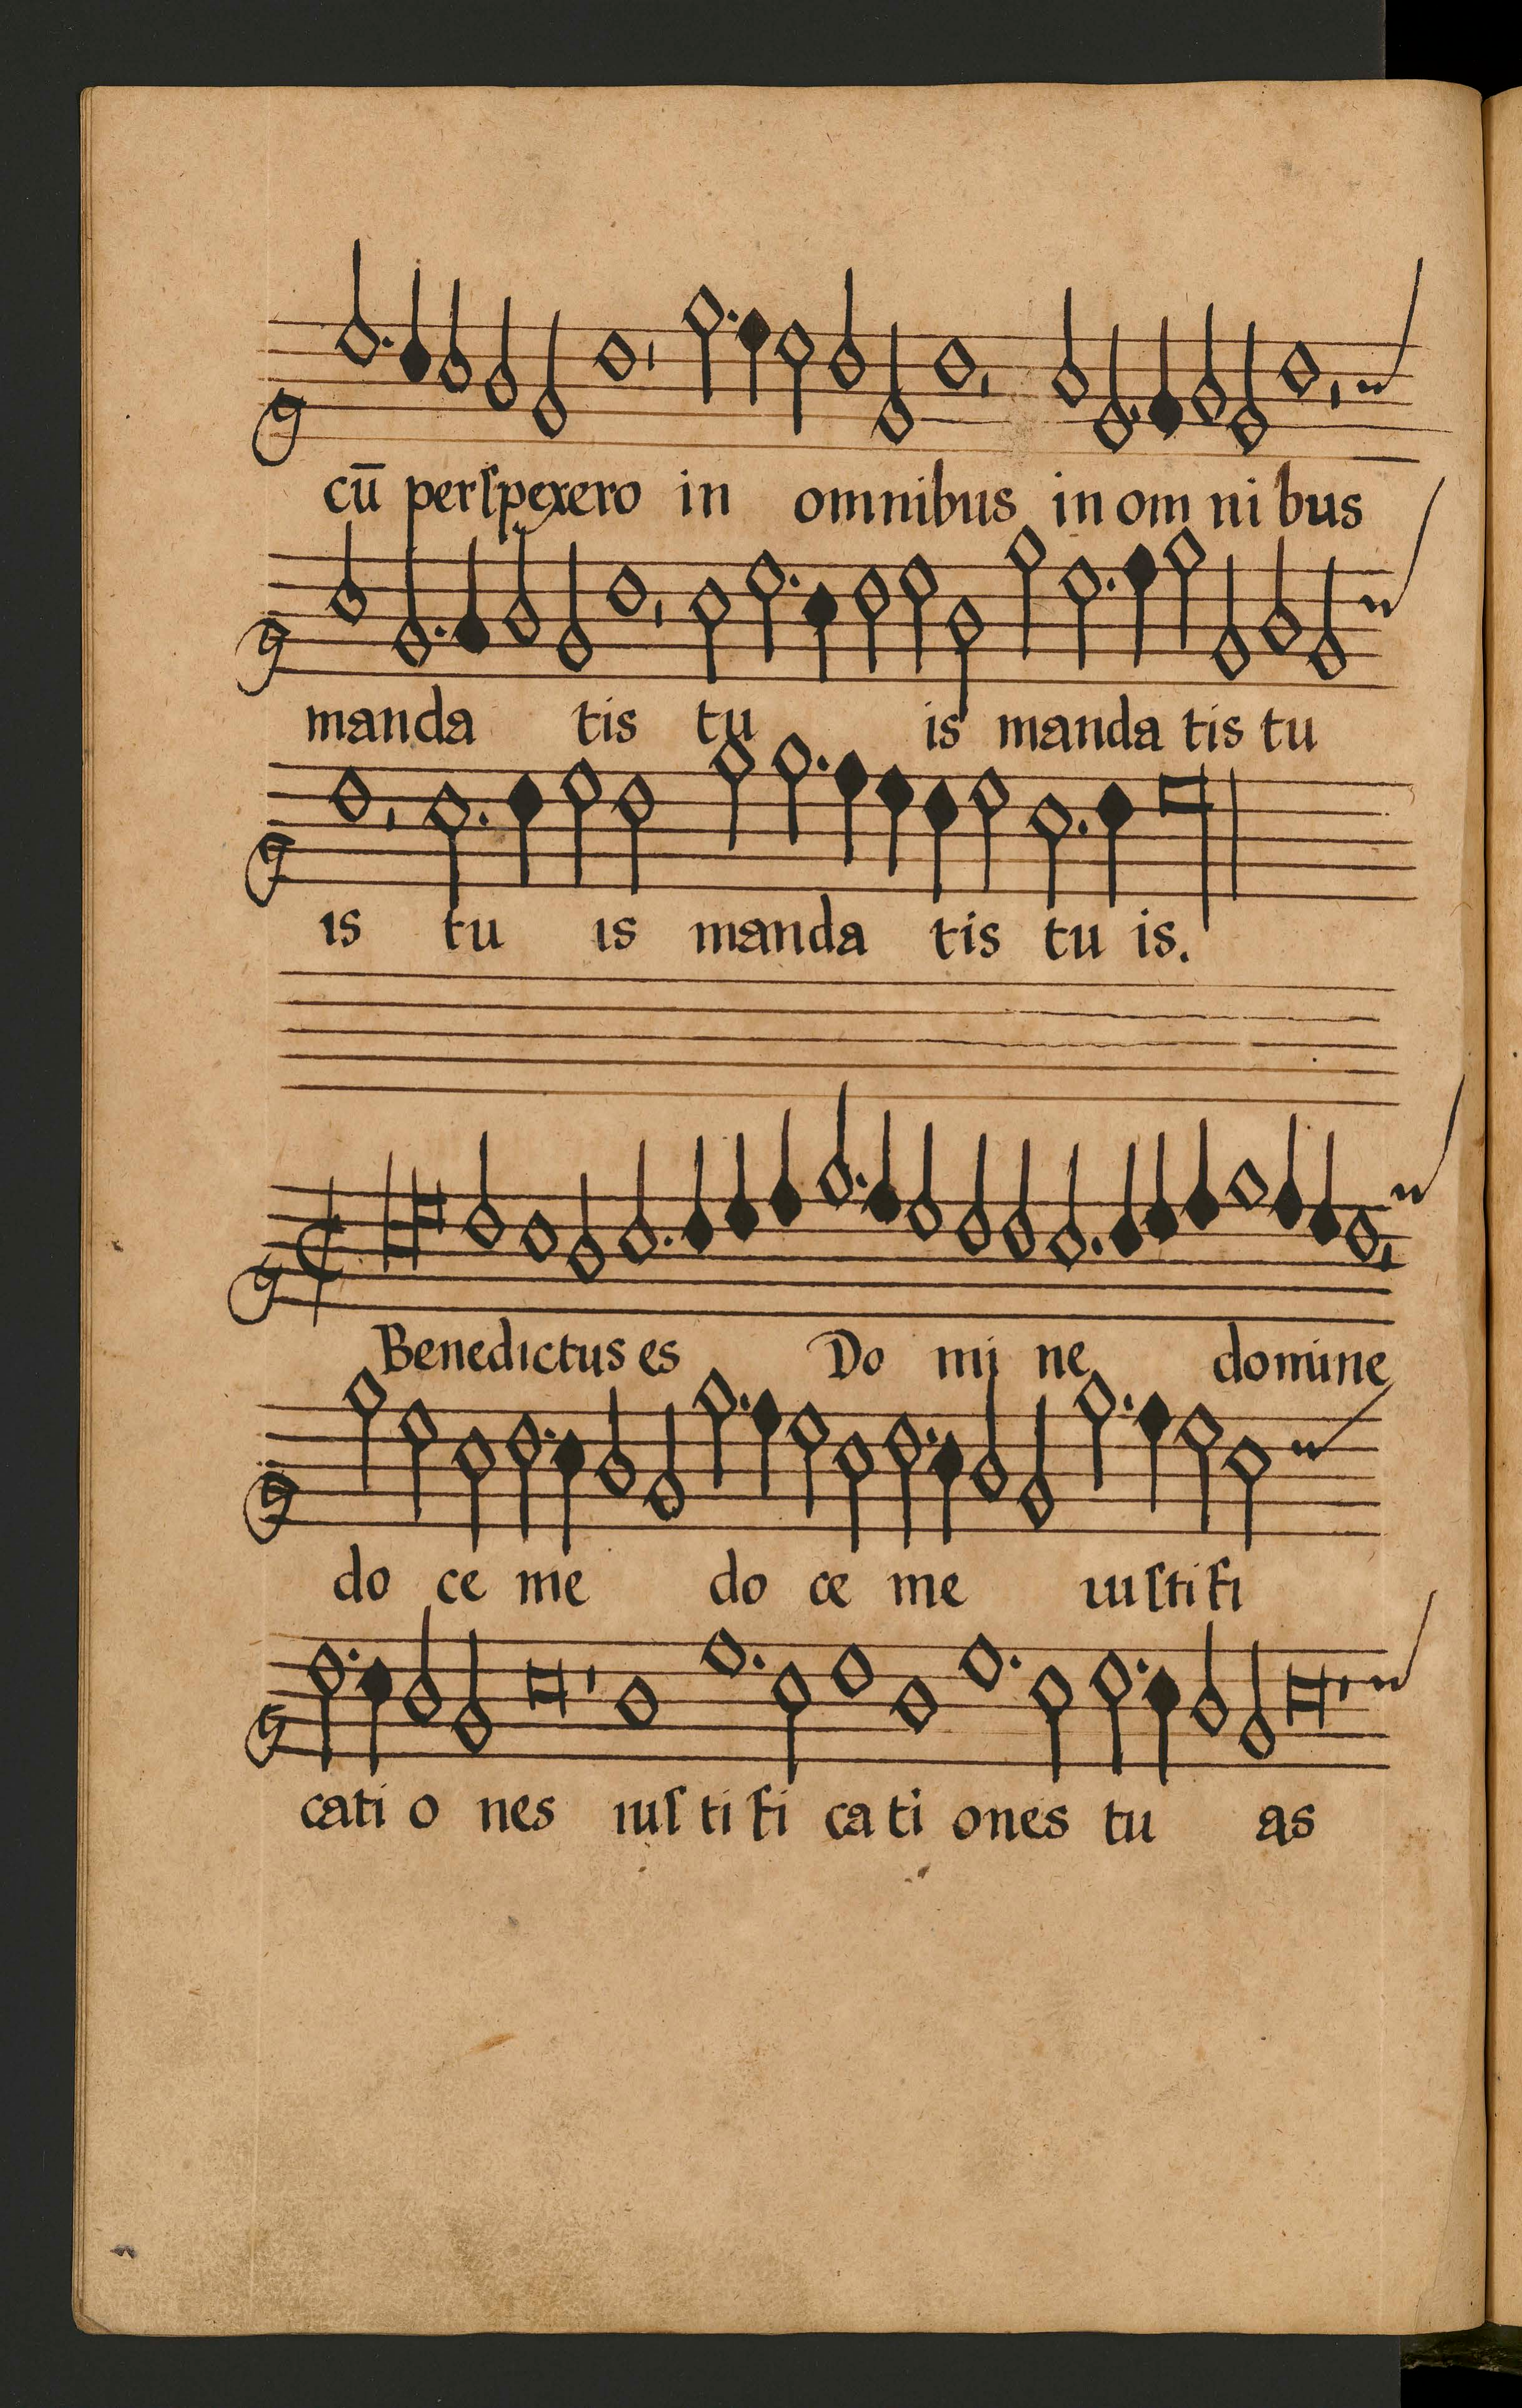 cū perſpexero in omnibus in om ni bus
manda tis tu is manda tis tu
is tu is manda tis tu is.
Benedictus es Do mi ne domine
do ce me do ce me iuſti fi
cati o nes iuſ ti fi ca ti ones tu as